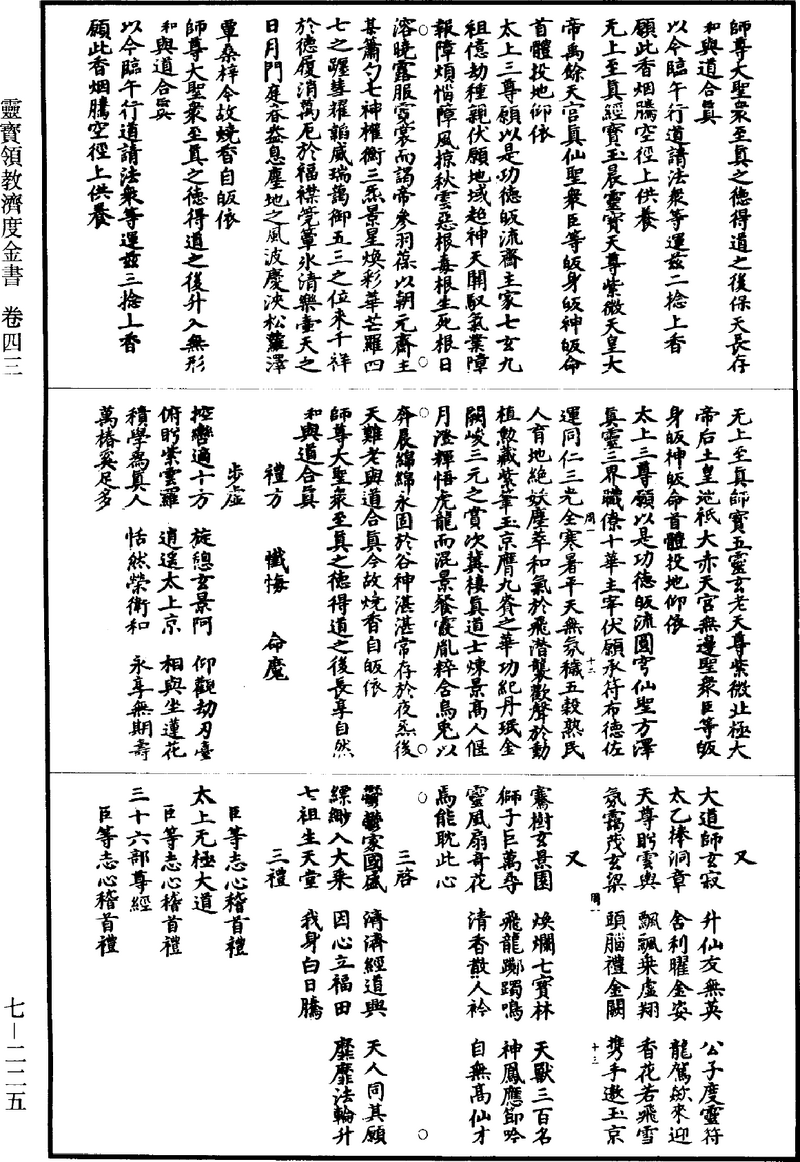 師尊大聖衆至真之德得道之後保天長存
和與道合真
以今臨午行道請法衆等運兹二捻上香
願此香烟騰空徑上供養
无上至真經寶玉晨靈寶天尊紫微天皇大
帝禹餘天宮真仙聖衆臣等皈身皈神皈命
首體投地仰依
太上三尊願以是功德皈流齋主家七玄九
祖億劫種親伏願地域超神天關馭氣業障
報障煩惱障風掠秋雲惡根毒根生死根日
溶曉露服霓裳而謁帝參羽葆以朝元齋主
某簫勺七神權衡三炁景星煥彩華芒羅四
七之躔彗耀韜威瑞藹御五三之位來千祥
於德履消萬厄於福襟筦簟氷清樂壷天之
日月門庭春益息塵地之風波慶泱松蘿澤
覃桑梓今故燒香自皈依
師尊大聖衆至真之德得道之後升入無形
和與道合真
以今臨午行道請法衆等運兹三捻上香
願此香烟騰空徑上供養
无上至真師寶五靈玄老天尊紫微北極大
帝后土皇地祇大赤天宮無邊聖衆臣等皈
身皈神皈命首體投地仰依
太上三尊願以是功德皈流圓穹仙聖方澤
真靈三界職僚十華主宰伏願承符布德佐
運同仁三光全寒暑平天無氛穢五穀熟民
人育地絶妖塵萃和氣於飛潛襲歡聲於動
植勲藏紫筆玉京膺九賚之華功紀丹珉金
闕峻三元之賞次冀棲真道士煉景高人偃
月澄輝悟虎龍而混景餐霞胤粹含烏兎以
奔晨綿綿永固於谷神湛湛常存於夜炁後
天難老與道合真今故燒香自皈依
師尊大聖衆至真之德得道之後長享自然
和與道合真
禮方 懺悔 命魔
步虛
控轡適十方 旋總玄景阿 仰觀劫刃臺
俯眄紫雲羅 逍遥太上京 相與坐蓮花
積學爲真人 恬然榮衛和 永享無期壽
萬椿奚足多
又
大道師玄寂 升仙友無英 公子度靈符
太乙捧洞章 舍利曜金姿 龍駕欻來迎
天尊眄雲輿 飄飄乘虛翔 香花若飛雪
氛靄茂玄梁 頭腦禮金闕 携手遨玉京
又
騫樹玄景園 煥爛七寶林 天獸三百名
獅子巨萬尋 飛龍躑躅鳴 神鳳應節吟
靈風扇奇花 清香散人衿 自無高仙才
焉能耽此心
三啓
鬱鬱家國盛 濟濟經道興 天人同其願
縹緲入大乘 因心立福田 靡靡法輪升
七祖生天堂 我身白日騰
三禮
臣等志心稽首禮
太上无極大道
臣等志心稽首禮
三十六部尊經
臣等志心稽首禮
靈寶領教濟度金書 卷四三
七—二二五